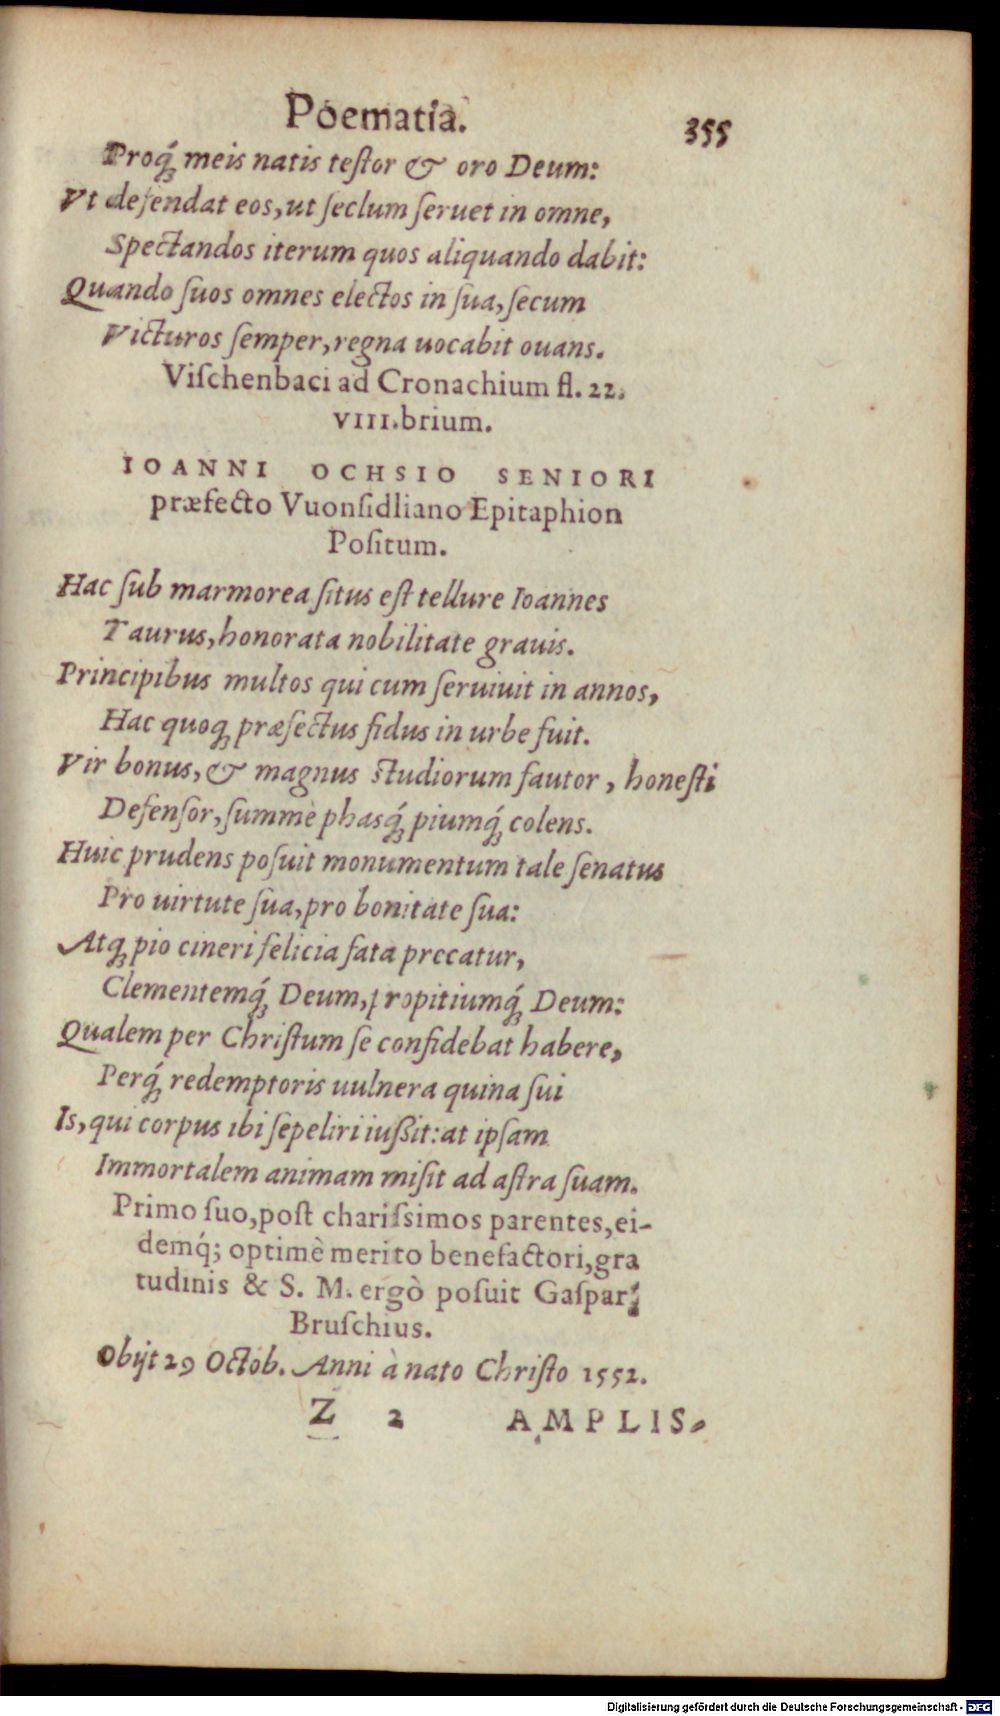 Poematia. 355
Proq́; meis natis teſtor & oro Deum:
Vt defendat eos, ut ſeclum ſeruet in omne,
Spectandos iterum quos aliquando dabit:
Quando ſuos omnes electos in ſua, ſecum
Victuros ſemper, regna uocabit ouans.
Viſchenbaci ad Cronachium fl. 22.
VIII.brium.
IOANNI OCHSIO SENIORI
præfecto Vuonſidliano Epitaphion
Poſitum.
Hac ſub marmorea ſitus eſt tellure Ioannes
Taurus, honorata nobilitate grauis.
Principibus multos qui cum ſeruiuit in annos,
Hac quoq; præfectus fidus in urbe fuit.
Vir bonus, & magnus ſtudiorum fautor, honeſti
Defenſor, ſummè phasq́; piumq́; colens.
Huic prudens poſuit monumentum tale ſenatus
Pro uirtute ſua, pro bonitate ſua:
Atq; pio cineri felicia fata precatur,
Clementemq́; Deum, propitiumq́; Deum:
Qualem per Chriſtum ſe confidebat habere,
Perq́; redemptoris uulnera quina ſui
Is, qui corpus ibi ſepeliri iußit: at ipſam
Immortalem animam miſit ad aſtra ſuam.
Primo ſuo, poſt chariſsimos parentes, ei-
demq́; optimè merito benefactori, gra
tudinis & S. M. ergò poſuit Gaſpar
Bruſchius.
Obijt 29 Octob. Anni à nato Chriſto 1552.
Z 2 AMPLIS-
Digitalisierung gefördert durch die Deutsche Forschungsgemeinschaft - DFG